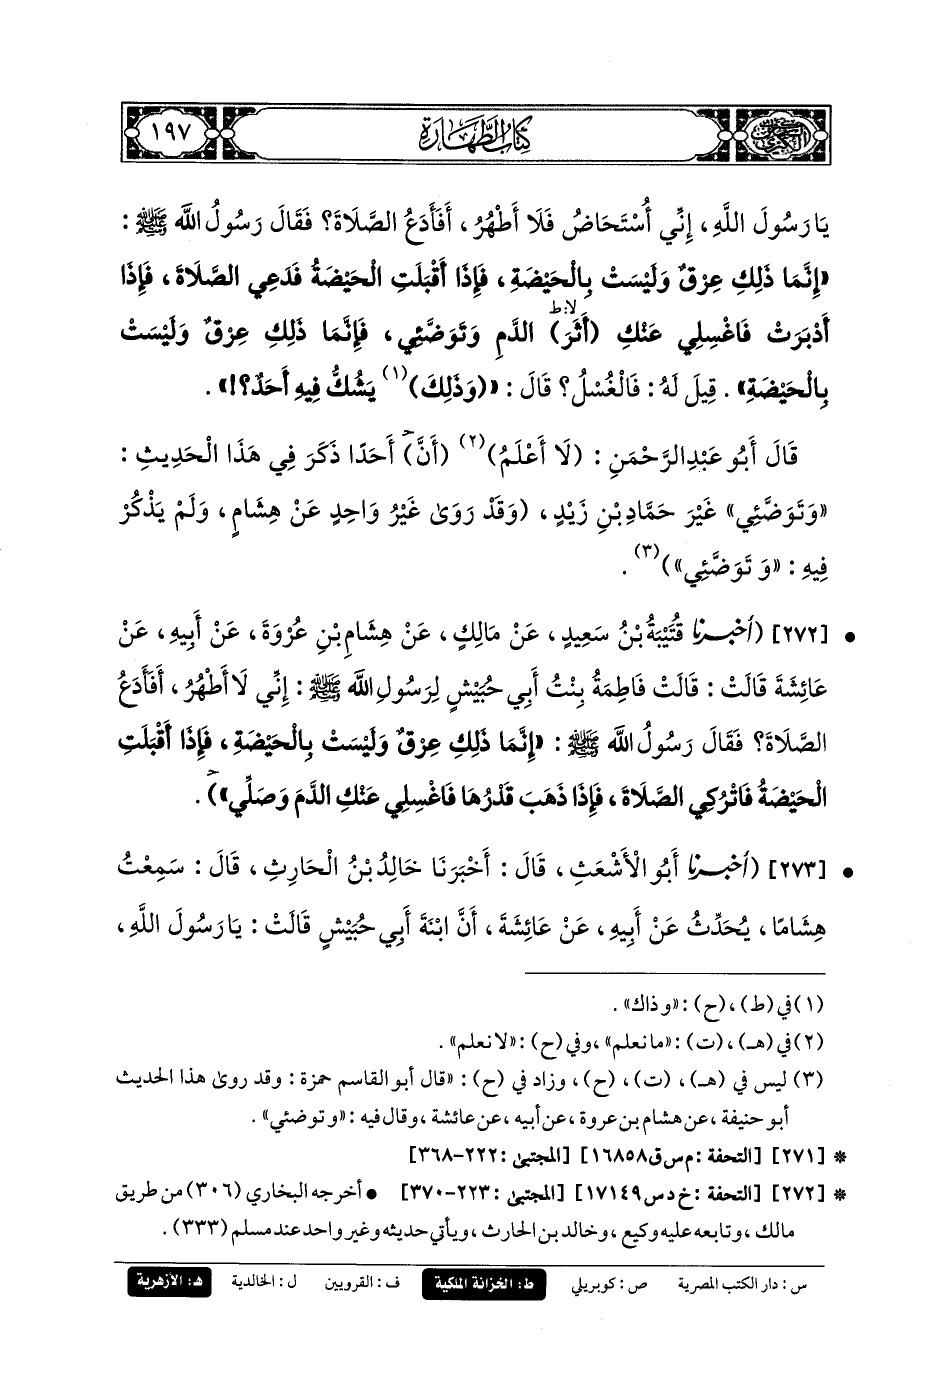 كِتَابُ الطَّهَارَةِ
١٩٧
يَا رَسُولَ اللَّهِ، إِنِّي أُسْتَحَاضُ فَلَا أَطْهُرُ، أَفَأَدَعُ الصَّلَاةَ؟ فَقَالَ رَسُولُ اللَّهِ ﷺ:
«إِنَّمَا ذَلِكِ عِرْقٌ وَلَيْسَتْ بِالْحَيْضَةِ، فَإِذَا أَقْبَلَتِ الْحَيْضَةُ فَدَعِي الصَّلَاةَ، فَإِذَا
أَدْبَرَتْ فَاغْسِلِي عَنْكِ (أَثَرَ) الدَّمِ وَتَوَضَّئِي، فَإِنَّمَا ذَلِكِ عِرْقٌ وَلَيْسَتْ
بِالْحَيْضَةِ». قِيلَ لَهُ: فَالْغُسْلُ؟ قَالَ: «(وَذَلِكَ)(١) يَشُكُّ فِيهِ أَحَدٌ؟!».
قَالَ أَبُو عَبْدِالرَّحْمَنِ: (لَا أَعْلَمُ)(٢) (أَنَّ) أَحَدًا ذَكَرَ فِي هَذَا الْحَدِيثِ:
«وَتَوَضَّئِي» غَيْرَ حَمَّادِ بْنِ زَيْدٍ، (وَقَدْ رَوَىٰ غَيْرُ وَاحِدٍ عَنْ هِشَامٍ، وَلَمْ يَذْكُرْ
فِيهِ: «وَتَوَضَّئِي»)(٣).
• [٢٧٢] (أخبرنا قُتَيْبَةُ بْنُ سَعِيدٍ، عَنْ مَالِكٍ، عَنْ هِشَامِ بْنِ عُرْوَةَ، عَنْ أَبِيهِ، عَنْ
عَائِشَةَ قَالَتْ: قَالَتْ فَاطِمَةُ بِنْتُ أَبِي حُبَيْشٍ لِرَسُولِ اللَّهِ ﷺ: إِنِّي لَا أَطْهُرُ، أَفَأَدَعُ
الصَّلَاةَ؟ فَقَالَ رَسُولُ اللَّهِ ﷺ: «إِنَّمَا ذَلِكِ عِرْقٌ وَلَيْسَتْ بِالْحَيْضَةِ، فَإِذَا أَقْبَلَتِ
الْحَيْضَةُ فَاتْرُكِي الصَّلَاةَ، فَإِذَا ذَهَبَ قَدْرُهَا فَاغْسِلِي عَنْكِ الدَّمَ وَصَلِّي»).
• [٢٧٣] (أخبرنا أَبُو الْأَشْعَثِ، قَالَ: أَخْبَرَنَا خَالِدُ بْنُ الْحَارِثِ، قَالَ: سَمِعْتُ
هِشَامًا، يُحَدِّثُ عَنْ أَبِيهِ، عَنْ عَائِشَةَ، أَنَّ ابْنَةَ أَبِي حُبَيْشٍ قَالَتْ: يَا رَسُولَ اللَّهِ،
(١) في (ط)، (ح): «وذاك».
(٢) في (هـ)، (ت): «ما نعلم»، وفي (ح): «لا نعلم».
(٣) ليس في (هـ)، (ت)، (ح)، وزاد في (ح): «قال أبو القاسم حمزة: وقد روىٰ هذا الحديث
أبو حنيفة، عن هشام بن عروة، عن أبيه، عن عائشة، وقال فيه: «وتوضئي».
* [٢٧١] [التحفة: م س ق ١٦٨٥٨] [المجتبىٰ: ٢٢٢-٣٦٨]
* [٢٧٢] [التحفة: خ د س ١٧١٤٩] [المجتبىٰ: ٢٢٣-٣٧٠] • أخرجه البخاري (٣٠٦) من طريق
مالك، وتابعه عليه وكيع، وخالد بن الحارث، ويأتي حديثه وغير واحد عند مسلم (٣٣٣).
س: دار الكتب المصرية ص: كوبريلي ط: الخزانة الملكية ف: القرويين ل: الخالدية هـ: الأزهرية